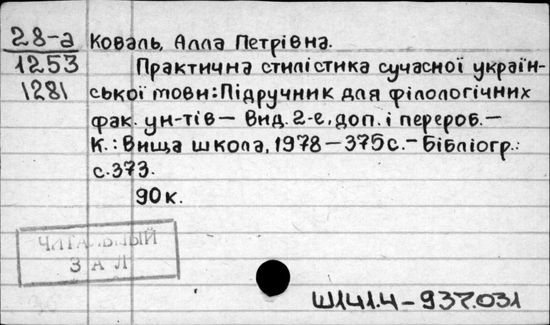 28-а Коваль, Алла Петрівна.
1253 Практична стилістика сучасної україн-
1281 ської мови: Підручник для філологічних
фак. ун-тів — Вид. 2-е, доп. і перероб. —
К.: Вища школа, 1978 — 375с. — Бібліогр.:
с. 373.
90к.
ЧИТАЛЬНЫЙ
ЗАЛ
Ш141.4-937.031